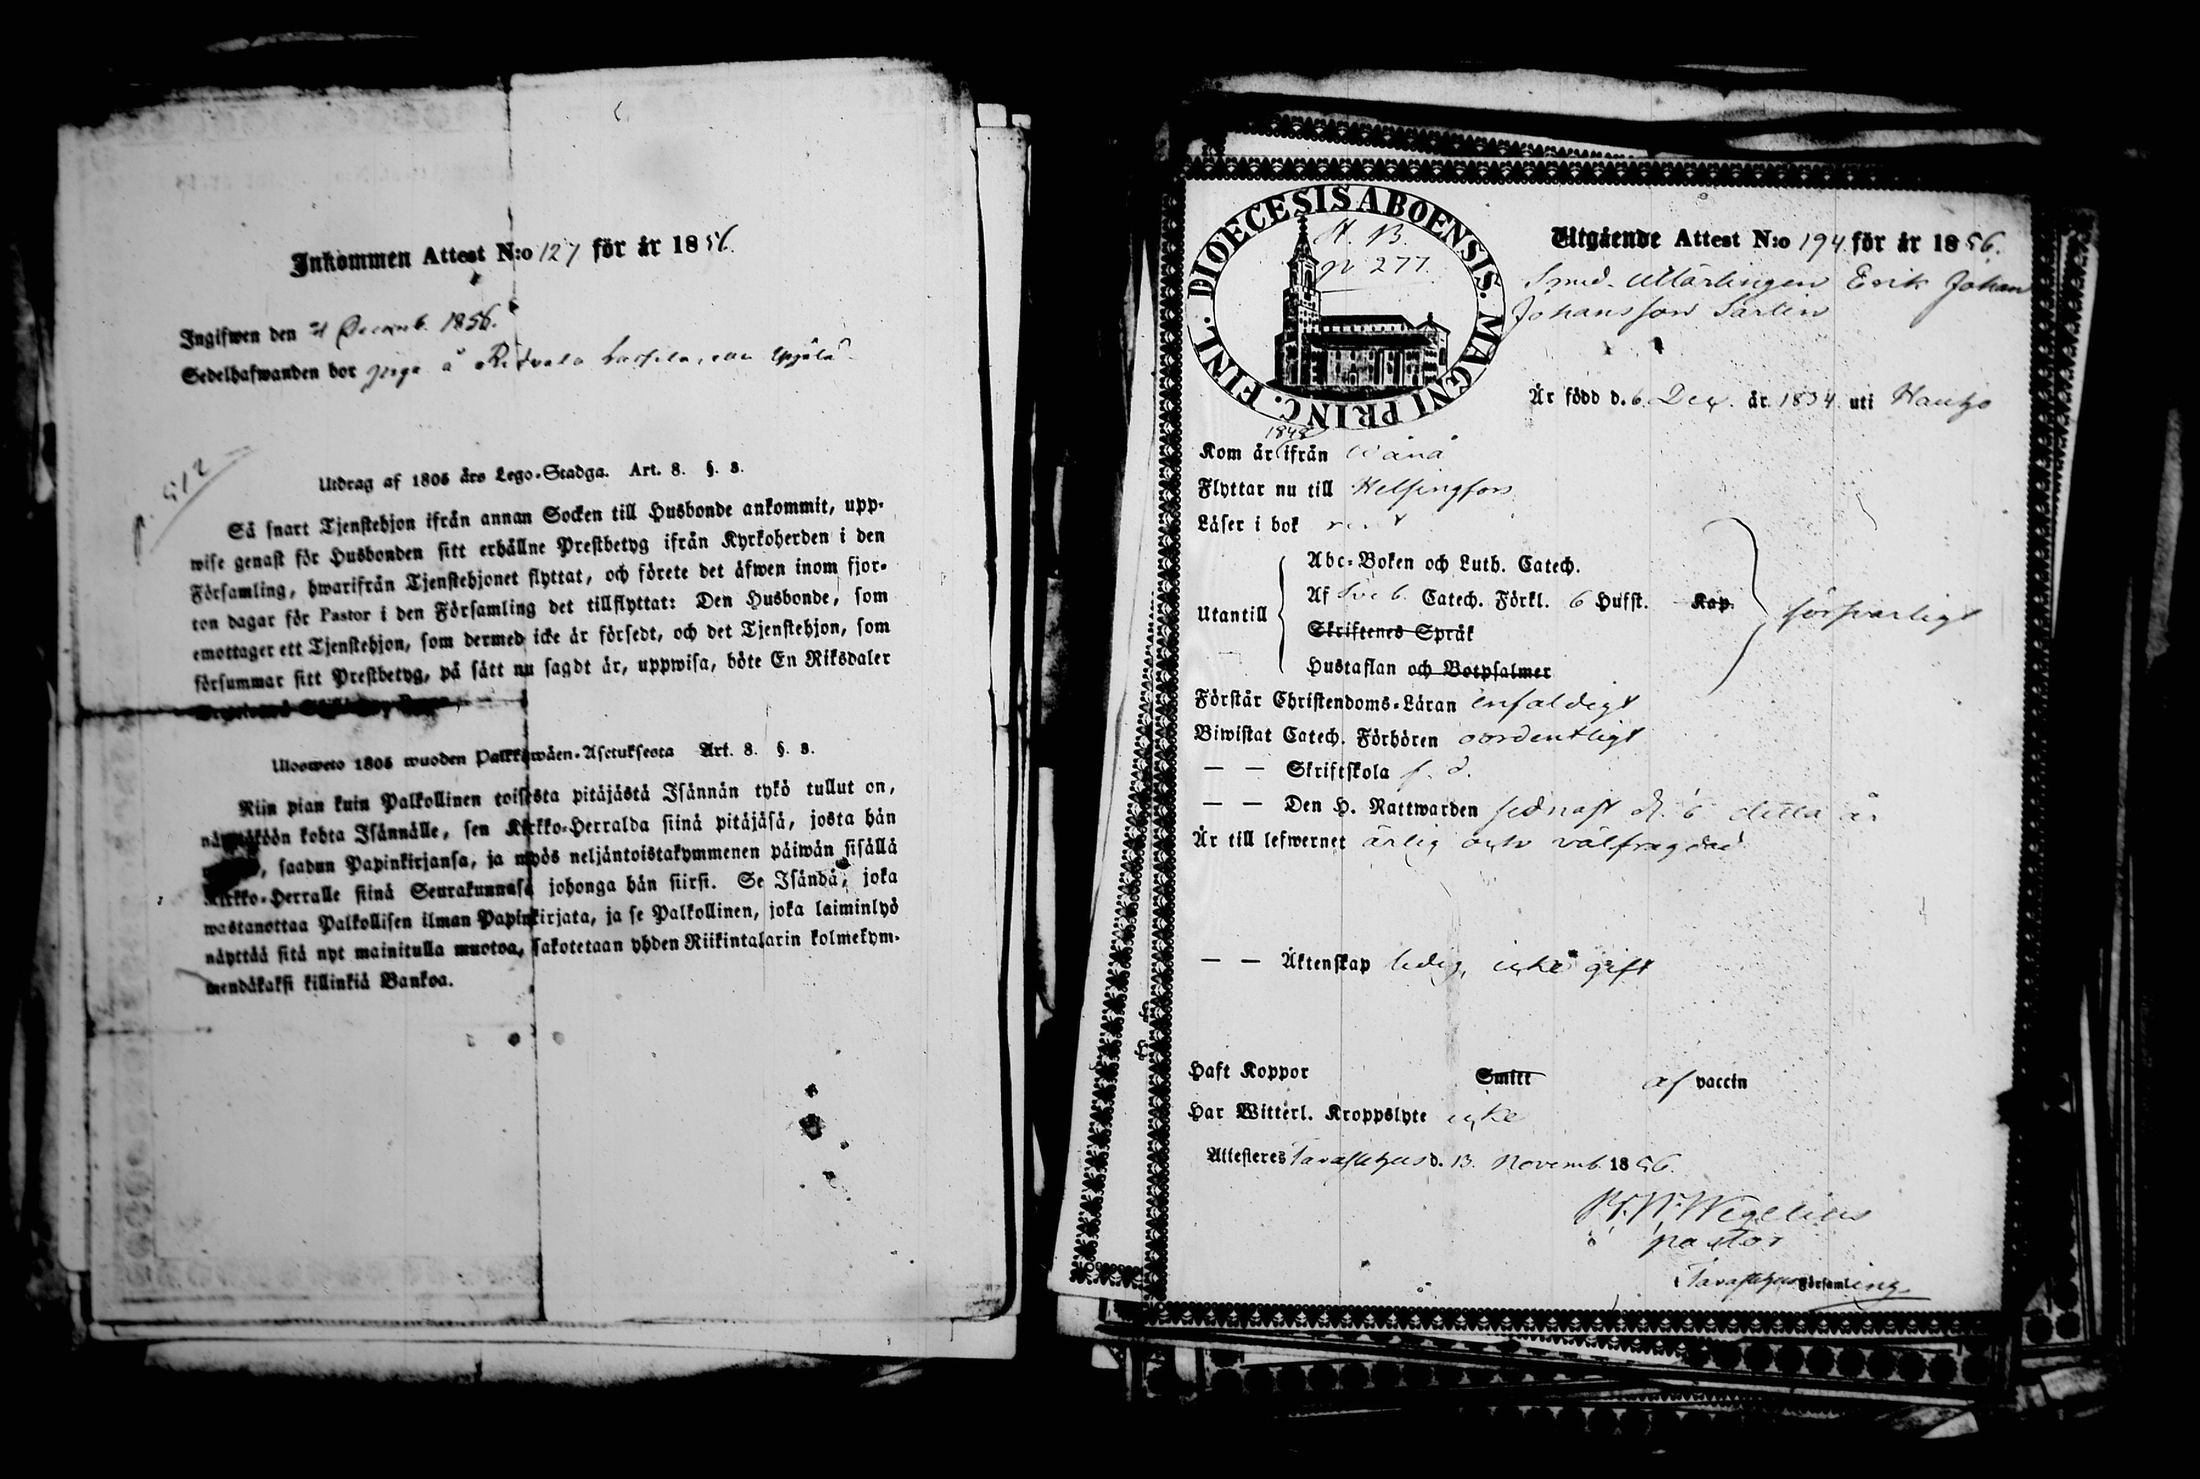 Inkommen Attest N:o 127 för år 1856.
Ingifwen den Decemb. 1856.
Sedelhafwanden bor
p. 512
Utdrag af 1805 års Lego-Stadga. Art. 8. §. 3.
Så snart Tjenstehjon ifrån annan Socken till Husbonde ankommit, upp-
wise genast för Husbonden sitt erhållne Prestbetyg ifrån Kyrkoherden i den
Församling, hwarifrån Tjenstehjonet flyttat, och förete det äfwen inom fjor-
ton dagar för Pastor i den Församling det tillflyttat: Den Husbonde, som
emottager ett Tjenstehjon, som dermed icke är försedt, och det Tjenstehjon, som
försummar sitt Prestbetyg, på sätt nu sagdt är, uppwisa, böte En Riksdaler
Ulosweto 1805 wuoden Palkkawäen-Asetuksesta Art. 8. §. 3.
Niin pian kuin Palkollinen toisesta pitäjästä Isännän tykö tullut on,
kohta Isännälle, sen Kirkko-Herralda siinä pitäjäsä, josta hän
, saadun Papinkirjansa, ja myös neljäntoistakymmenen päiwän sisällä
Kirkko-Herralle siinä Seurakunnasa johonga hän siirsi. Se Isändä, joka
wastanottaa Palkollisen ilman Papinkirjata, ja se Palkollinen, joka laiminlyö
näyttää sitä nyt mainitulla muotoa, sakotetaan yhden Riikintalarin kolmekym-
mendäkaksi killinkiä Bankoa.
DIOECESIS ABOENSIS. MAGNI PRINC. FINL.
H. B.
p 277.
Utgående Attest N:o 194 för år 1856.
Smed-Utlärlingen Erik Johan
Johansson Sarlin
Är född d. 6 Dec. år 1834 uti Hauho
1848
Kom år ifrån Wånå
Flyttar nu till Helsingfors
Läser i bok rent
Utantill
Abc-Boken och Luth. Catech.
Af Sveb. Catech. Förkl. 6 Hufst. Kap.
Skriftenes Språk
Hustaflan och Botpsalmer
försvarligt
Förstår Christendoms-Läran enfaldigt
Biwistat Catech. Förhören oordentligt
— — Skriftskola f. d.
— — Den H. Nattwarden sednast d. 6 detta år
Är till lefwernet ärlig och välfrägdad
— — Äktenskap ledig, icke gift
Haft Koppor Smitt af vaccin
Har Witterl. Kroppslyte icke
Attesteres Tavastehus d. 13. Novemb. 1856.
Wegelius
pastor
i Tavastehus församling